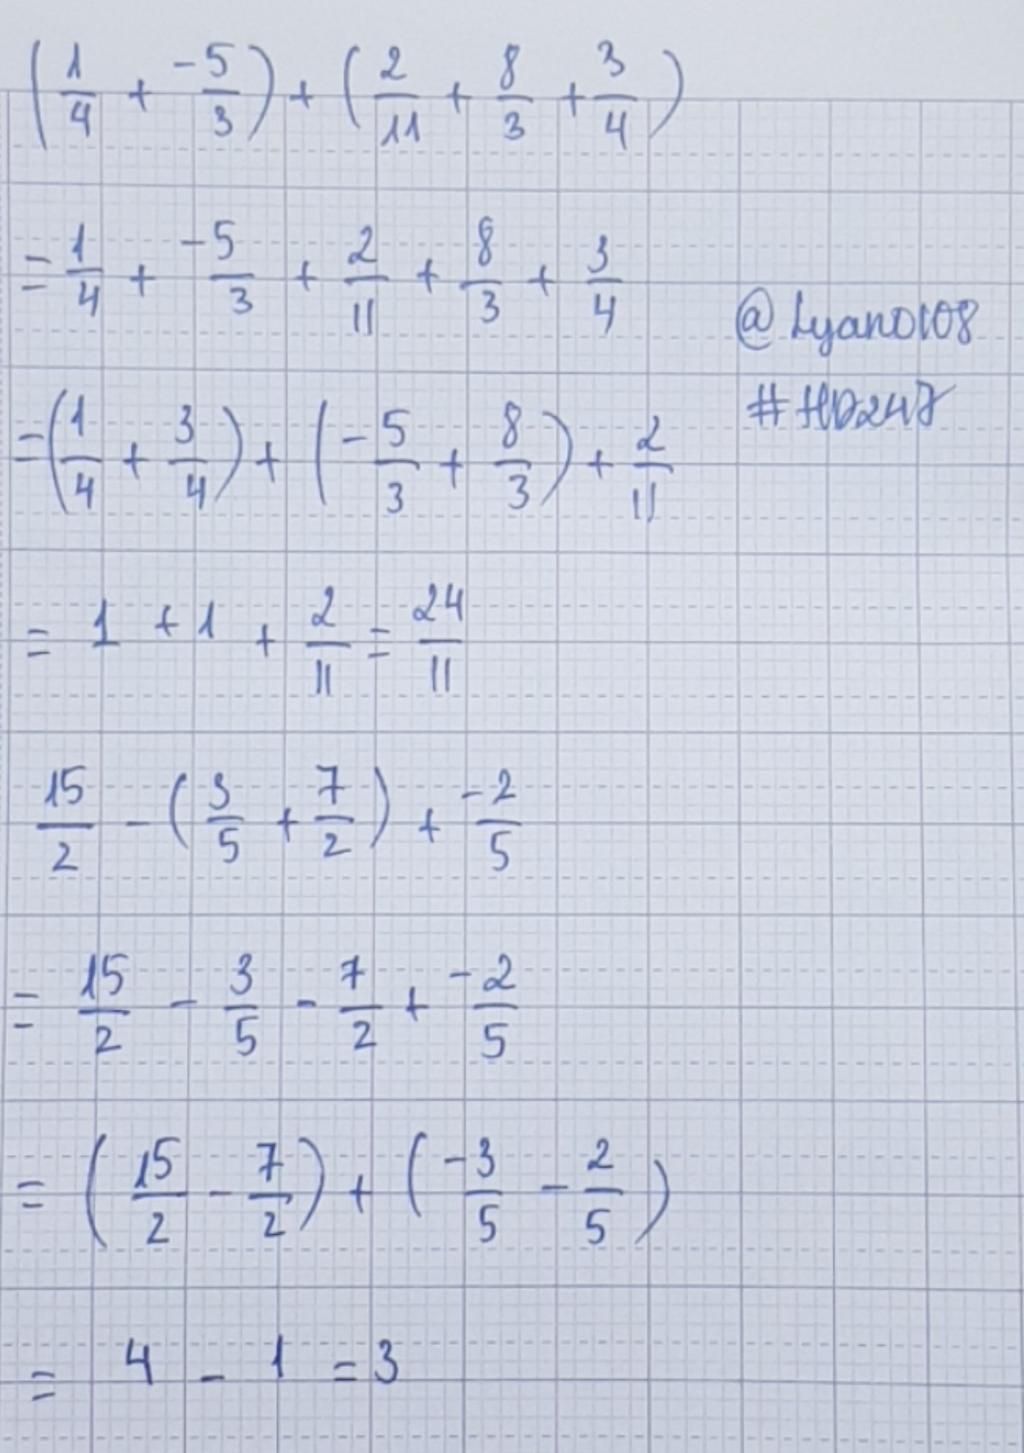 (1/4 + -5/3) + (2/11 + 8/3 + 3/4)
= 1/4 + -5/3 + 2/11 + 8/3 + 3/4
@Lyano108
#HD247
= (1/4 + 3/4) + (-5/3 + 8/3) + 2/11
= 1 + 1 + 2/11 = 24/11
15/2 - (3/5 + 7/2) + -2/5
= 15/2 - 3/5 - 7/2 + -2/5
= (15/2 - 7/2) + (-3/5 - 2/5)
= 4 - 1 = 3